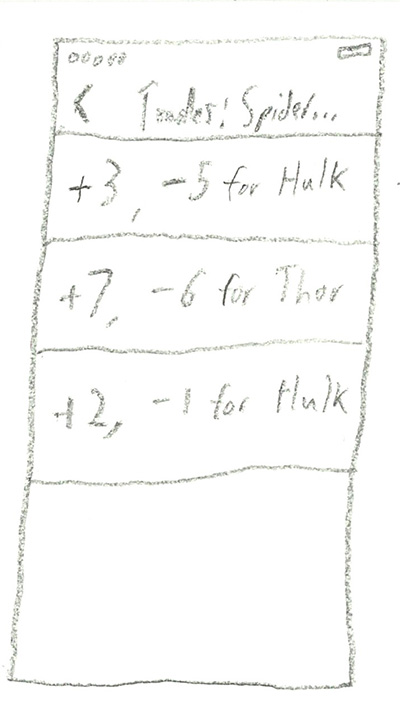 < Trades: Spider...
+3, -5 for Hulk
+7, -6 for Thor
+2, -1 for Hulk